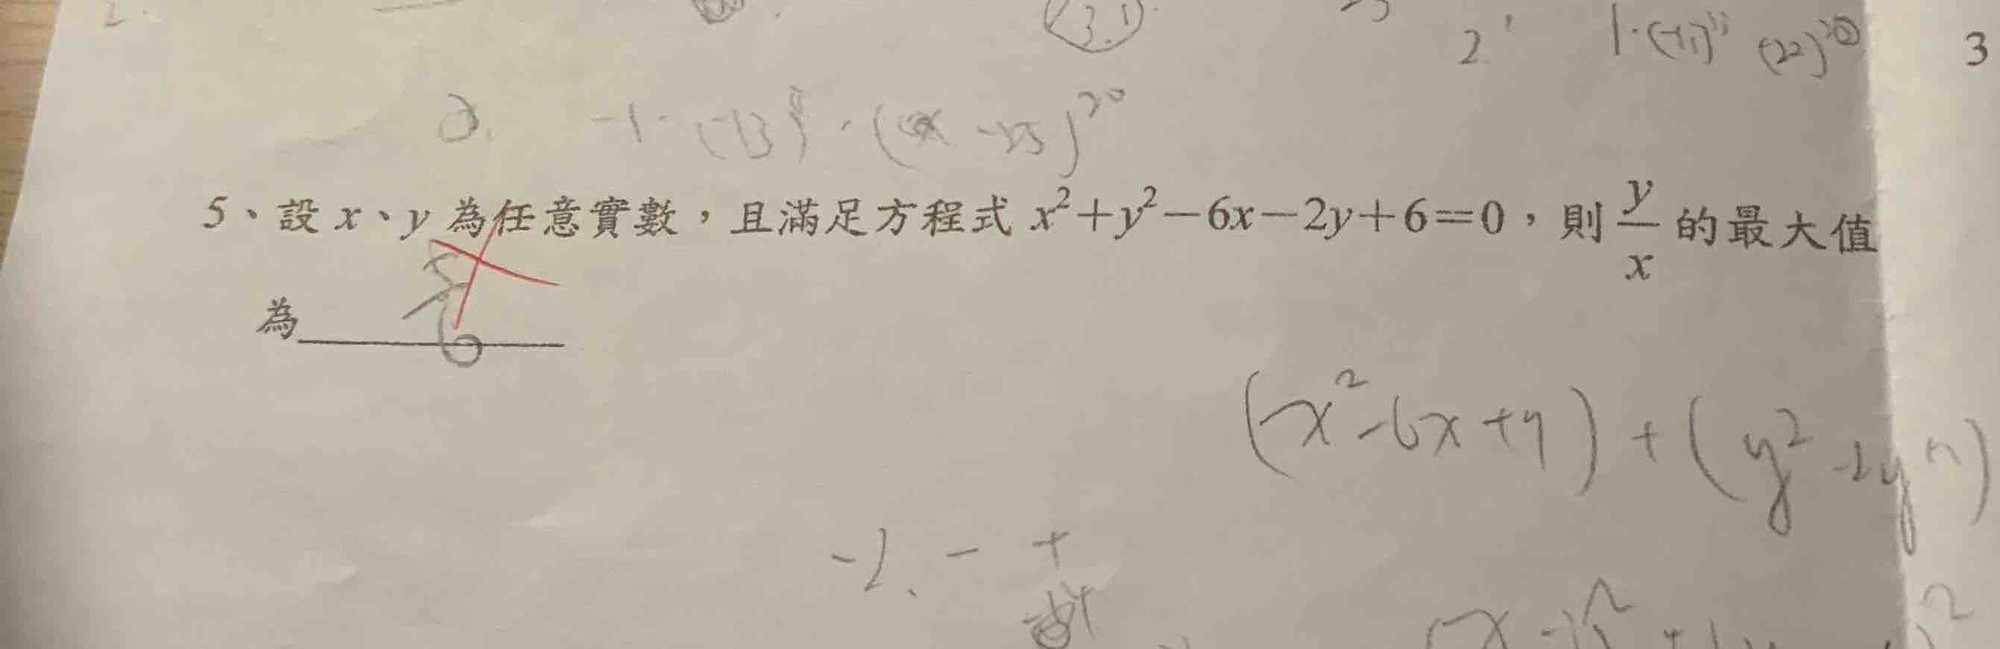 (3.1)
2 1·(-11)¹¹ (22)²⁰
3
-1·(-13)⁸·(x-25)²⁰
5、設 x、y 為任意實數，且滿足方程式 x²+y²-6x-2y+6=0，則 y/x 的最大值
為 5/6
(x²-6x+9)+(y²-2y+1)
-2、- +